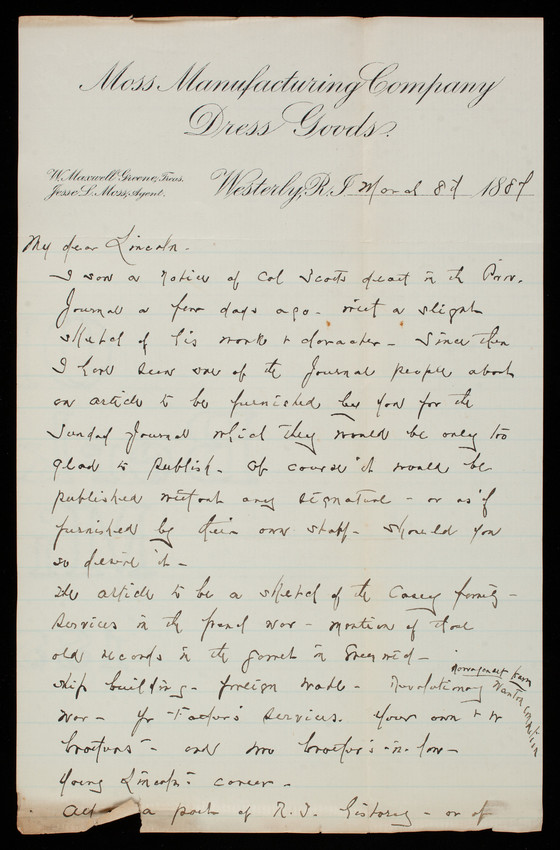 Moss Manufacturing Company
Dress Goods.
W. Maxwell Greene, Treas.
Jesse L. Moss, Agent.
Westerly, R. I. March 8th 1889
My dear Lincoln.
I saw a notice of Col Scotts death in the Prov.
Journal a few days ago - with a slight
sketch of his work & character - Since then
I have seen one of the Journal people about
an article to be furnished by you for the
Sunday Journal which they would be only too
glad to publish - Of course it would be
published without any signature - or as if
furnished by their own staff - should you
so desire it -
The article to be a sketch of the Casey family -
Services in the french war - mention of those
old records in the garret in Greenwich -
ship building - foreign trade - Revolutionary
Narragansett farm
Wanton
war - Yr Father's services. Your own & yr
brothers - and two brother's-in-law -
Young Lincoln's career -
a part of R. I. history - or of